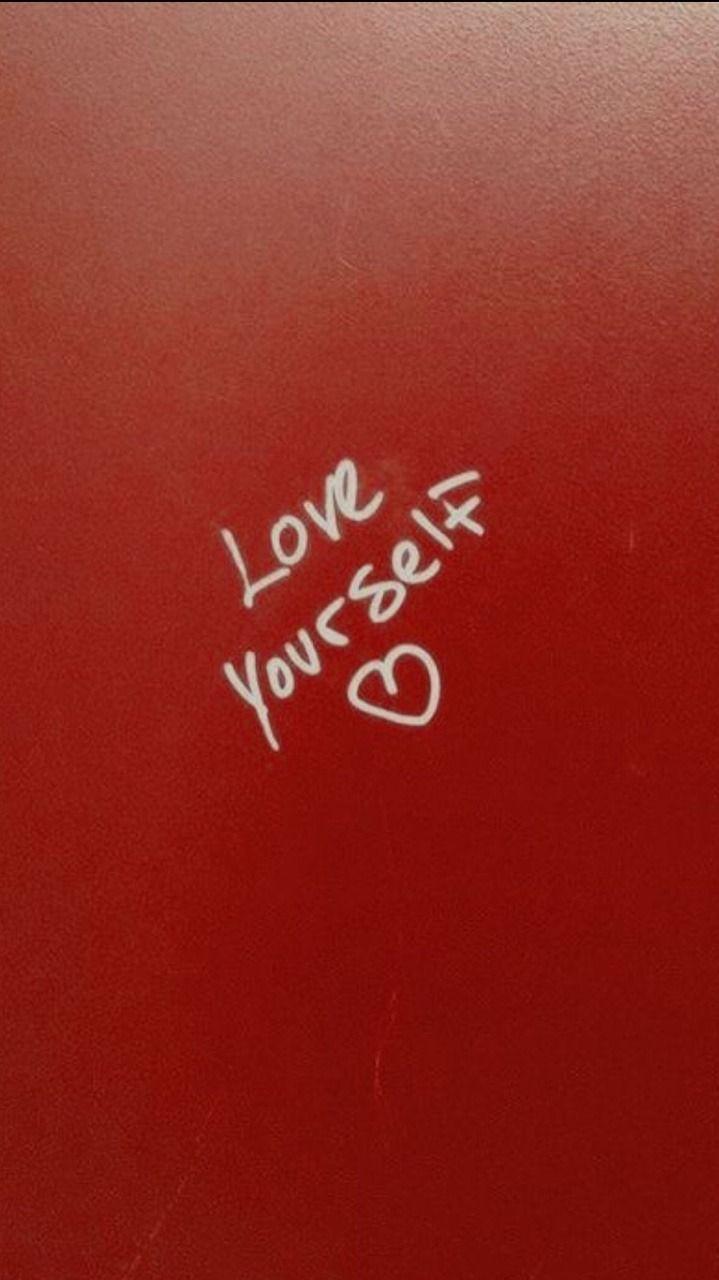 Love
Yourself
♡